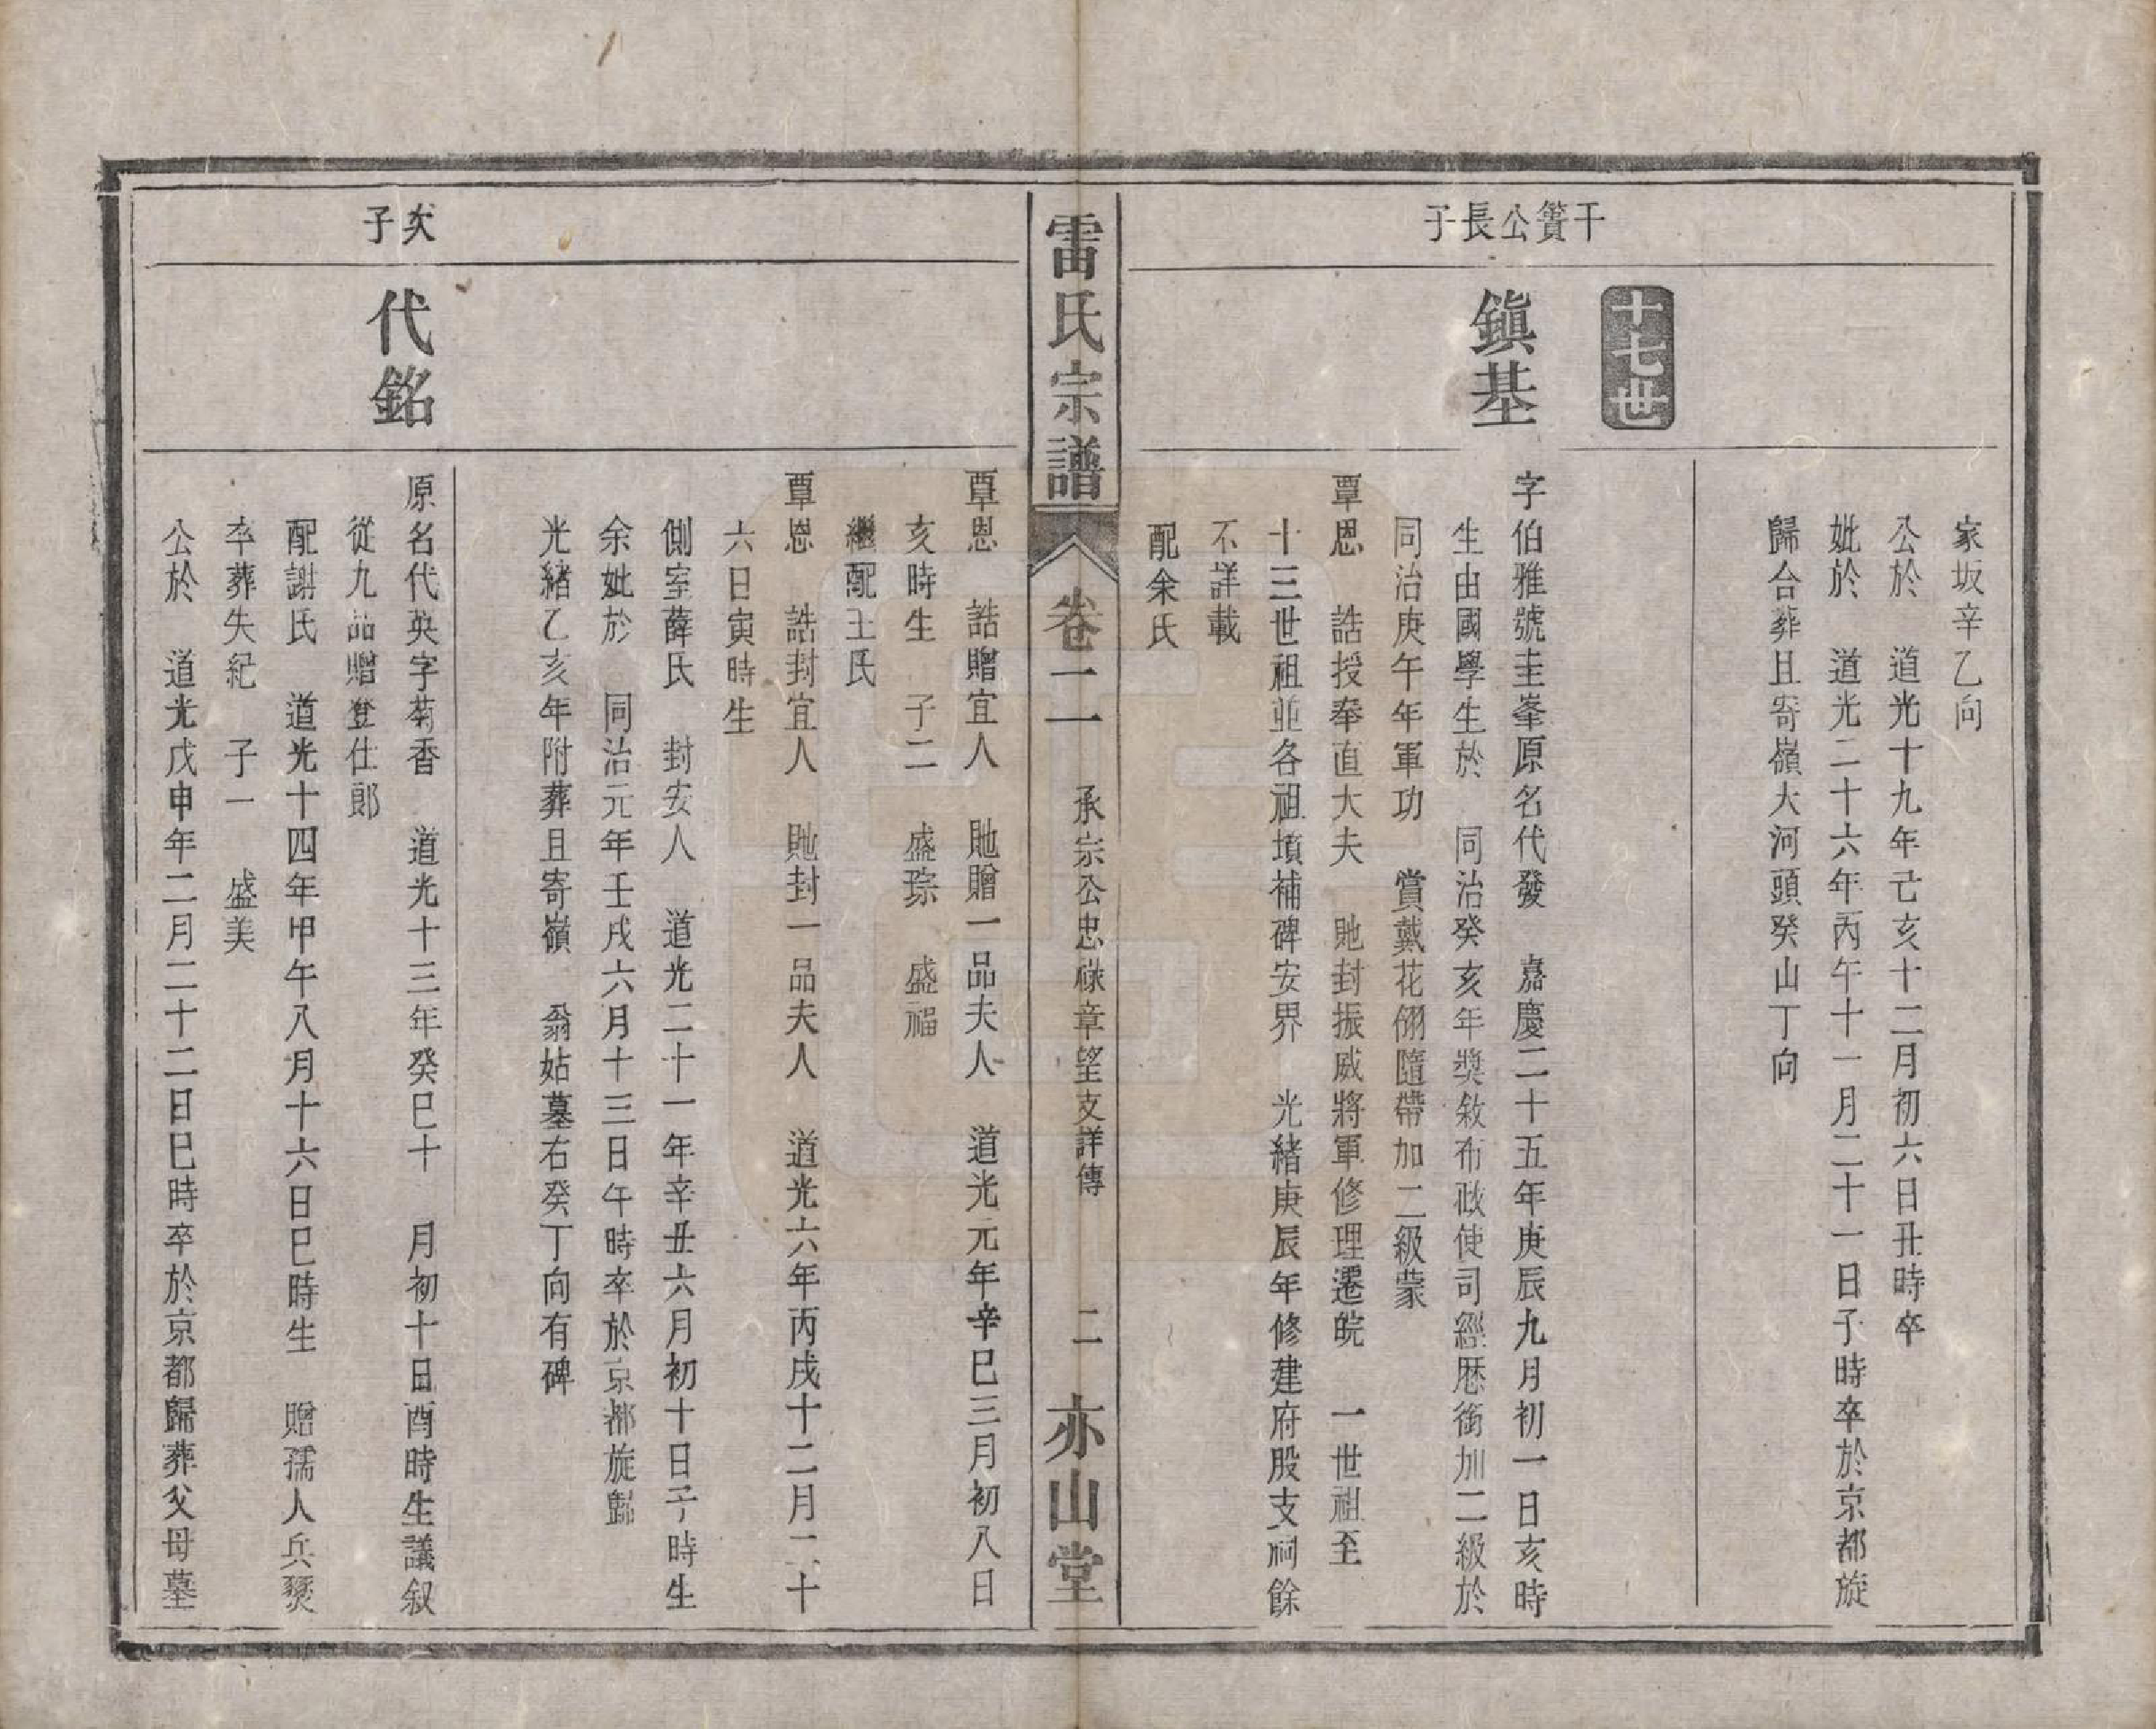 家坂辛乙向
公於　道光十九年己亥十二月初六日丑時卒
妣於　道光二十六年丙午十一月二十一日子時卒於京都旋
歸合葬且寄嶺大河頭癸山丁向
十七世
干簣公長子
鎮基
字伯雅號圭峯原名代發　嘉慶二十五年庚辰九月初一日亥時
生由國學生於　同治癸亥年獎敘布政使司經歷銜加二級於
同治庚午年軍功　賞戴花翎隨帶加二級蒙
覃恩　誥授奉直大夫　貤封振威將軍修理遷皖　一世祖至
十三世祖並各祖墳補碑安界　光緒庚辰年修建府股支祠餘
不詳載
配余氏
雷氏宗譜
卷二　承宗公忠祿章望支詳傳　二　亦山堂
覃恩　誥贈宜人　貤贈一品夫人　道光元年辛巳三月初八日
亥時生　子二　盛琮　盛福
繼配王氏
覃恩　誥封宜人　貤封一品夫人　道光六年丙戌十二月二十
六日寅時生
側室薛氏　封安人　道光二十一年辛丑六月初十日子時生
余妣於　同治元年壬戌六月十三日午時卒於京都旋歸
光緒乙亥年附葬且寄嶺　翁姑墓右癸丁向有碑
次子
代銘
原名代英字菊香　道光十三年癸巳十　月初十日酉時生議叙
從九品贈登仕郎
配謝氏　道光十四年甲午八月十六日巳時生　贈孺人兵燹
卒葬失紀　子一　盛美
公於　道光戊申年二月二十二日巳時卒於京都歸葬父母墓